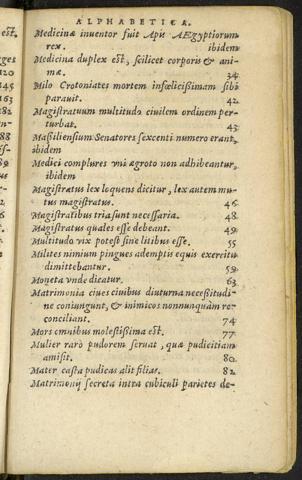 ALPHABETICA.
Medicinæ inuentor fuit Apis AEgyptiorum
rex. ibidem
Medicina duplex est, scilicet corporis & ani-
mæ. 34
Milo Crotoniates mortem infœlicißimam sibi
parauit. 42
Magistratuum multitudo ciuilem ordinem per-
turbat. 43
Maßiliensium Senatores sexcenti numero erant,
ibidem
Medici complures vni ægroto non adhibeantur,
ibidem
Magistratus lex loquens dicitur, lex autem mu-
tus magistratus. 46
Magistratibus tria sunt necessaria. 48.
Magistratus quales esse debeant. 49.
Multitudo vix potest sine litibus esse. 55
Milites nimium pingues ademptis equis exercitu
dimittebantur. 59.
Moneta vnde dicatur. 63
Matrimonia ciues ciuibus diuturna necessitudi-
ne coniungunt, & inimicos nonnunquàm re-
conciliant. 74
Mors omnibus molestißima est. 77
Mulier rarò pudorem seruat, quæ pudicitiam
amisit. 80.
Mater casta pudicas alit filias. 82
Matrimonij secreta intra cubiculi parietes de-
est.
120
145
163
182
88
89